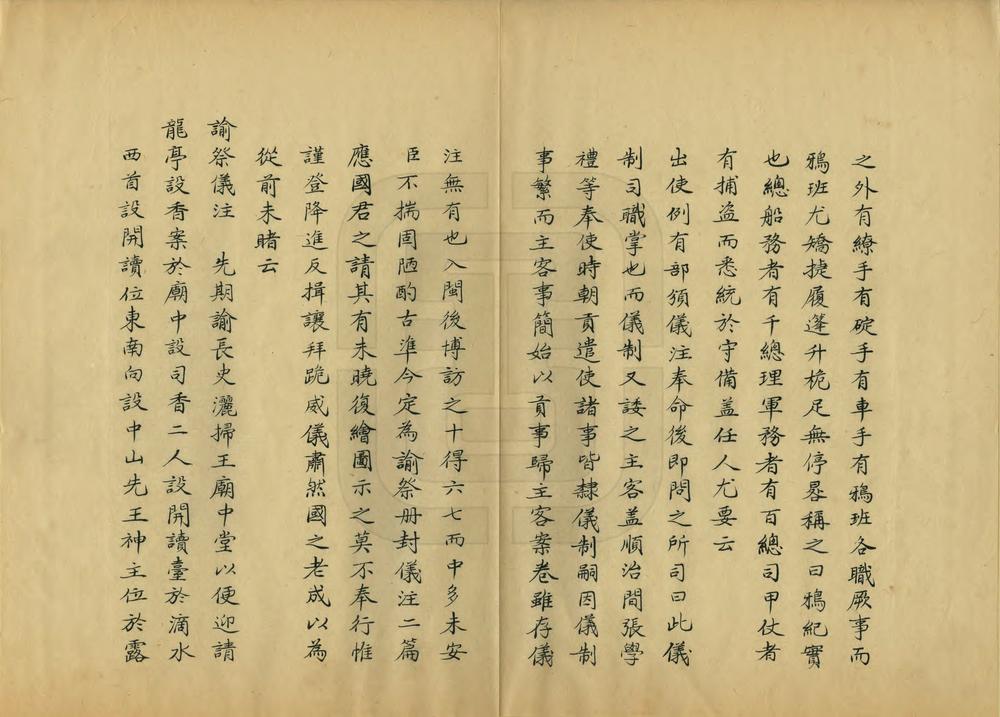 之外有繚手有碇手有車手有鴉班各職厥事而
鴉班尤矯捷履篷升桅足無停晷稱之曰鴉紀實
也總船務者有千總理軍務者有百總司甲仗者
有捕盜而悉統於守備盖任人尤要云
出使例有部頒儀注奉命後即問之所司曰此儀
制司職掌也而儀制又諉之主客盖順治間張學
禮等奉使時朝貢遣使諸事皆隸儀制嗣因儀制
事繁而主客事簡始以貢事歸主客案卷雖存儀
注無有也入閩後博訪之十得六七而中多未安
臣不揣固陋酌古準今定為諭祭册封儀注二篇
應國君之請其有未曉復繪圖示之莫不奉行惟
謹登降進反揖讓拜跪威儀肅然國之老成以為
從前未睹云
諭祭儀注　先期諭長史灑掃王廟中堂以便迎請
龍亭設香案於廟中設司香二人設開讀臺於滴水
西首設開讀位東南向設中山先王神主位於露